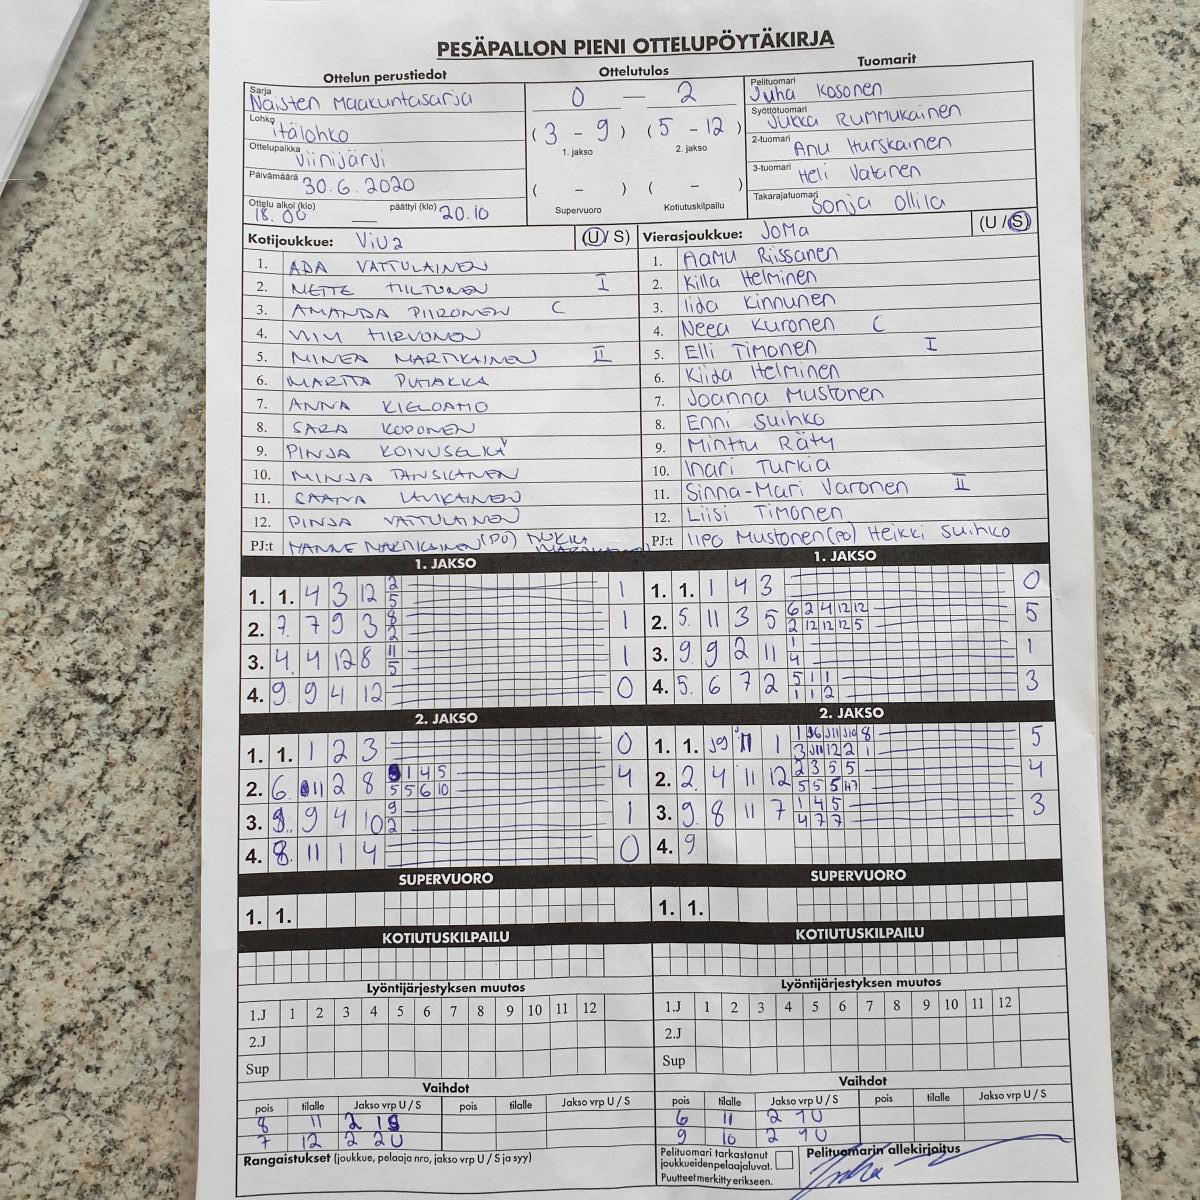 PESÄPALLON PIENI OTTELUPÖYTÄKIRJA
Ottelun perustiedot
Ottelutulos
Tuomarit
Sarja Naisten Maakuntasarja
Lohko itälohko
Ottelupaikka Viinijärvi
Päivämäärä 30.6.2020
Ottelu alkoi (klo) 18.00 päättyi (klo) 20.10
0 — 2
(3 - 9) (5 - 12)
1. jakso 2. jakso
( - ) ( - )
Supervuoro Kotiutuskilpailu
Pelituomari Juha Kosonen
Syöttötuomari Jukka Rummukainen
2-tuomari Anu Hurskainen
3-tuomari Heli Vatanen
Takarajatuomari Sonja Ollila
Kotijoukkue: ViU2 (U/S)
1. ADA VATTULAINEN
2. METTE HILTUNEN I
3. AMANDA PIIRONEN C
4. HIRVONEN
5. MINEA MARTIKAINEN II
6. MARTTA PUHAKKA
7. ANNA KIELOAHO
8. SARA KOPONEN
9. PINJA KOIVUSELKÄ
10. MINJA TANSKANEN
11. SAANA
12. PINJA VATTULAINEN
PJ:t HANNE MARTIKAINEN (PÖ)
Vierasjoukkue: JoMa (U/S)
1. Aamu Riissanen
2. Killa Helminen
3. Iida Kinnunen
4. Neea Kuronen C
5. Elli Timonen I
6. Kiida Helminen
7. Joanna Mustonen
8. Enni Suihko
9. Minttu Räty
10. Inari Turkia
11. Sinna-Mari Varonen II
12. Liisi Timonen
PJ:t Iipo Mustonen (PÖ) Heikki Suihko
1. JAKSO
1. 1. 4 3 12 2 5 1
2. 7. 7 9 3 8 2 1
3. 4. 4 12 8 11 5 1
4. 9. 9 4 12 0
1. JAKSO
1. 1. 1 4 3 0
2. 5. 11 3 5 6 2 4 12 12 5
2 12 12 12 5
3. 9. 9 2 11 1 4 1
4. 5. 6 7 2 5 1 1 3
1 1 2
2. JAKSO
1. 1. 1 2 3 0
2. 6. 11 2 8 1 4 5 4
5 5 6 10
3. 9. 9 4 10 9 2 1
4. 8. 11 1 4 0
2. JAKSO
1. 1. J9 11 1 8 5
3 J11 12 2 1
2. 2. 4 11 12 2 3 5 5 4
5 5 5
3. 9. 8 11 7 1 4 5 3
4 7 7
4. 9.
SUPERVUORO
1. 1.
SUPERVUORO
1. 1.
KOTIUTUSKILPAILU
KOTIUTUSKILPAILU
Lyöntijärjestyksen muutos
1.J 1 2 3 4 5 6 7 8 9 10 11 12
2.J
Sup
Lyöntijärjestyksen muutos
1.J 1 2 3 4 5 6 7 8 9 10 11 12
2.J
Sup
Vaihdot
pois tilalle Jakso vrp U / S pois tilalle Jakso vrp U / S
8 11 2 1S
7 12 2 2U
Vaihdot
pois tilalle Jakso vrp U / S pois tilalle Jakso vrp U / S
6 11 2 1U
9 10 2 1U
Rangaistukset (joukkue, pelaaja nro, jakso vrp U / S ja syy)
Pelituomari tarkastanut
joukkueiden pelaajaluvat.
Puutteet merkitty erikseen.
Pelituomarin allekirjoitus